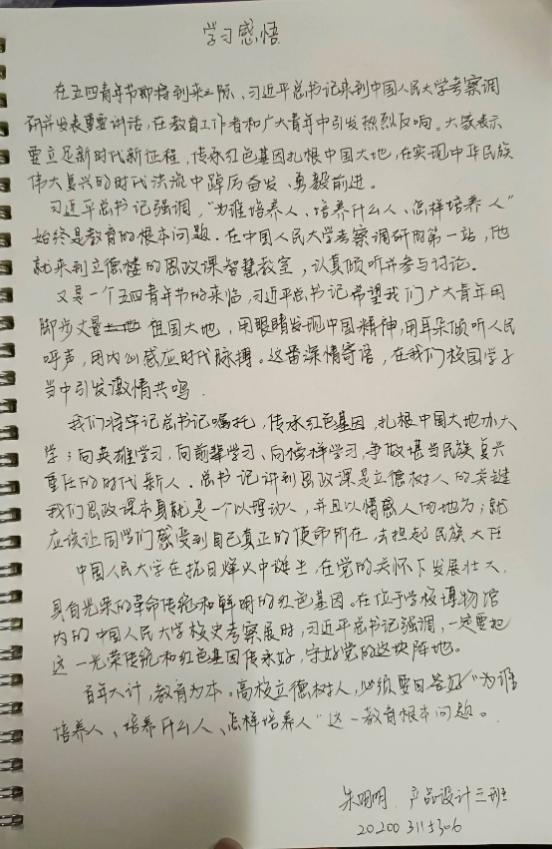 学习感悟
在五四青年节即将到来之际、习近平总书记来到中国人民大学考察调
研并发表重要讲话，在教育工作者和广大青年中引发热烈反响。大家表示
要立足新时代新征程，传承红色基因扎根中国大地，在实现中华民族
伟大复兴的时代洪流中踔厉奋发、勇毅前进。
习近平总书记强调，“为谁培养人、培养什么人、怎样培养人”
始终是教育的根本问题。在中国人民大学考察调研的第一站，他
就来到立德楼的思政课智慧教室，认真倾听并参与讨论。
又是一个五四青年节的来临，习近平总书记希望我们广大青年用
脚步丈量祖国大地，用眼睛发现中国精神，用耳朵倾听人民
呼声，用内心感应时代脉搏。这番深情寄语，在我们校园学子
当中引发激情共鸣.
我们将牢记总书记嘱托，传承红色基因，扎根中国大地办大
学；向英雄学习，向前辈学习、向榜样学习，争做堪当民族复兴
重任的时代新人。总书记讲到思政课是立德树人的关键
我们思政课本身就是一个以理动人，并且以情感人的地方；就
应该让同学们感受到自己真正的使命所在，去担起民族大任
中国人民大学在抗日烽火中诞生，在党的关怀下发展壮大，
具有光荣的革命传统和鲜明的红色基因。在位于学校博物馆
内的中国人民大学校史考察展时，习近平总书记强调，一定要把
这一光荣传统和红色基因传承好，守好党的这块阵地。
百年大计，教育为本。高校立德树人，必须要回答好“为谁
培养人、培养什么人、怎样培养人”这一教育根本问题。
朱明明 产品设计三班
202003115306